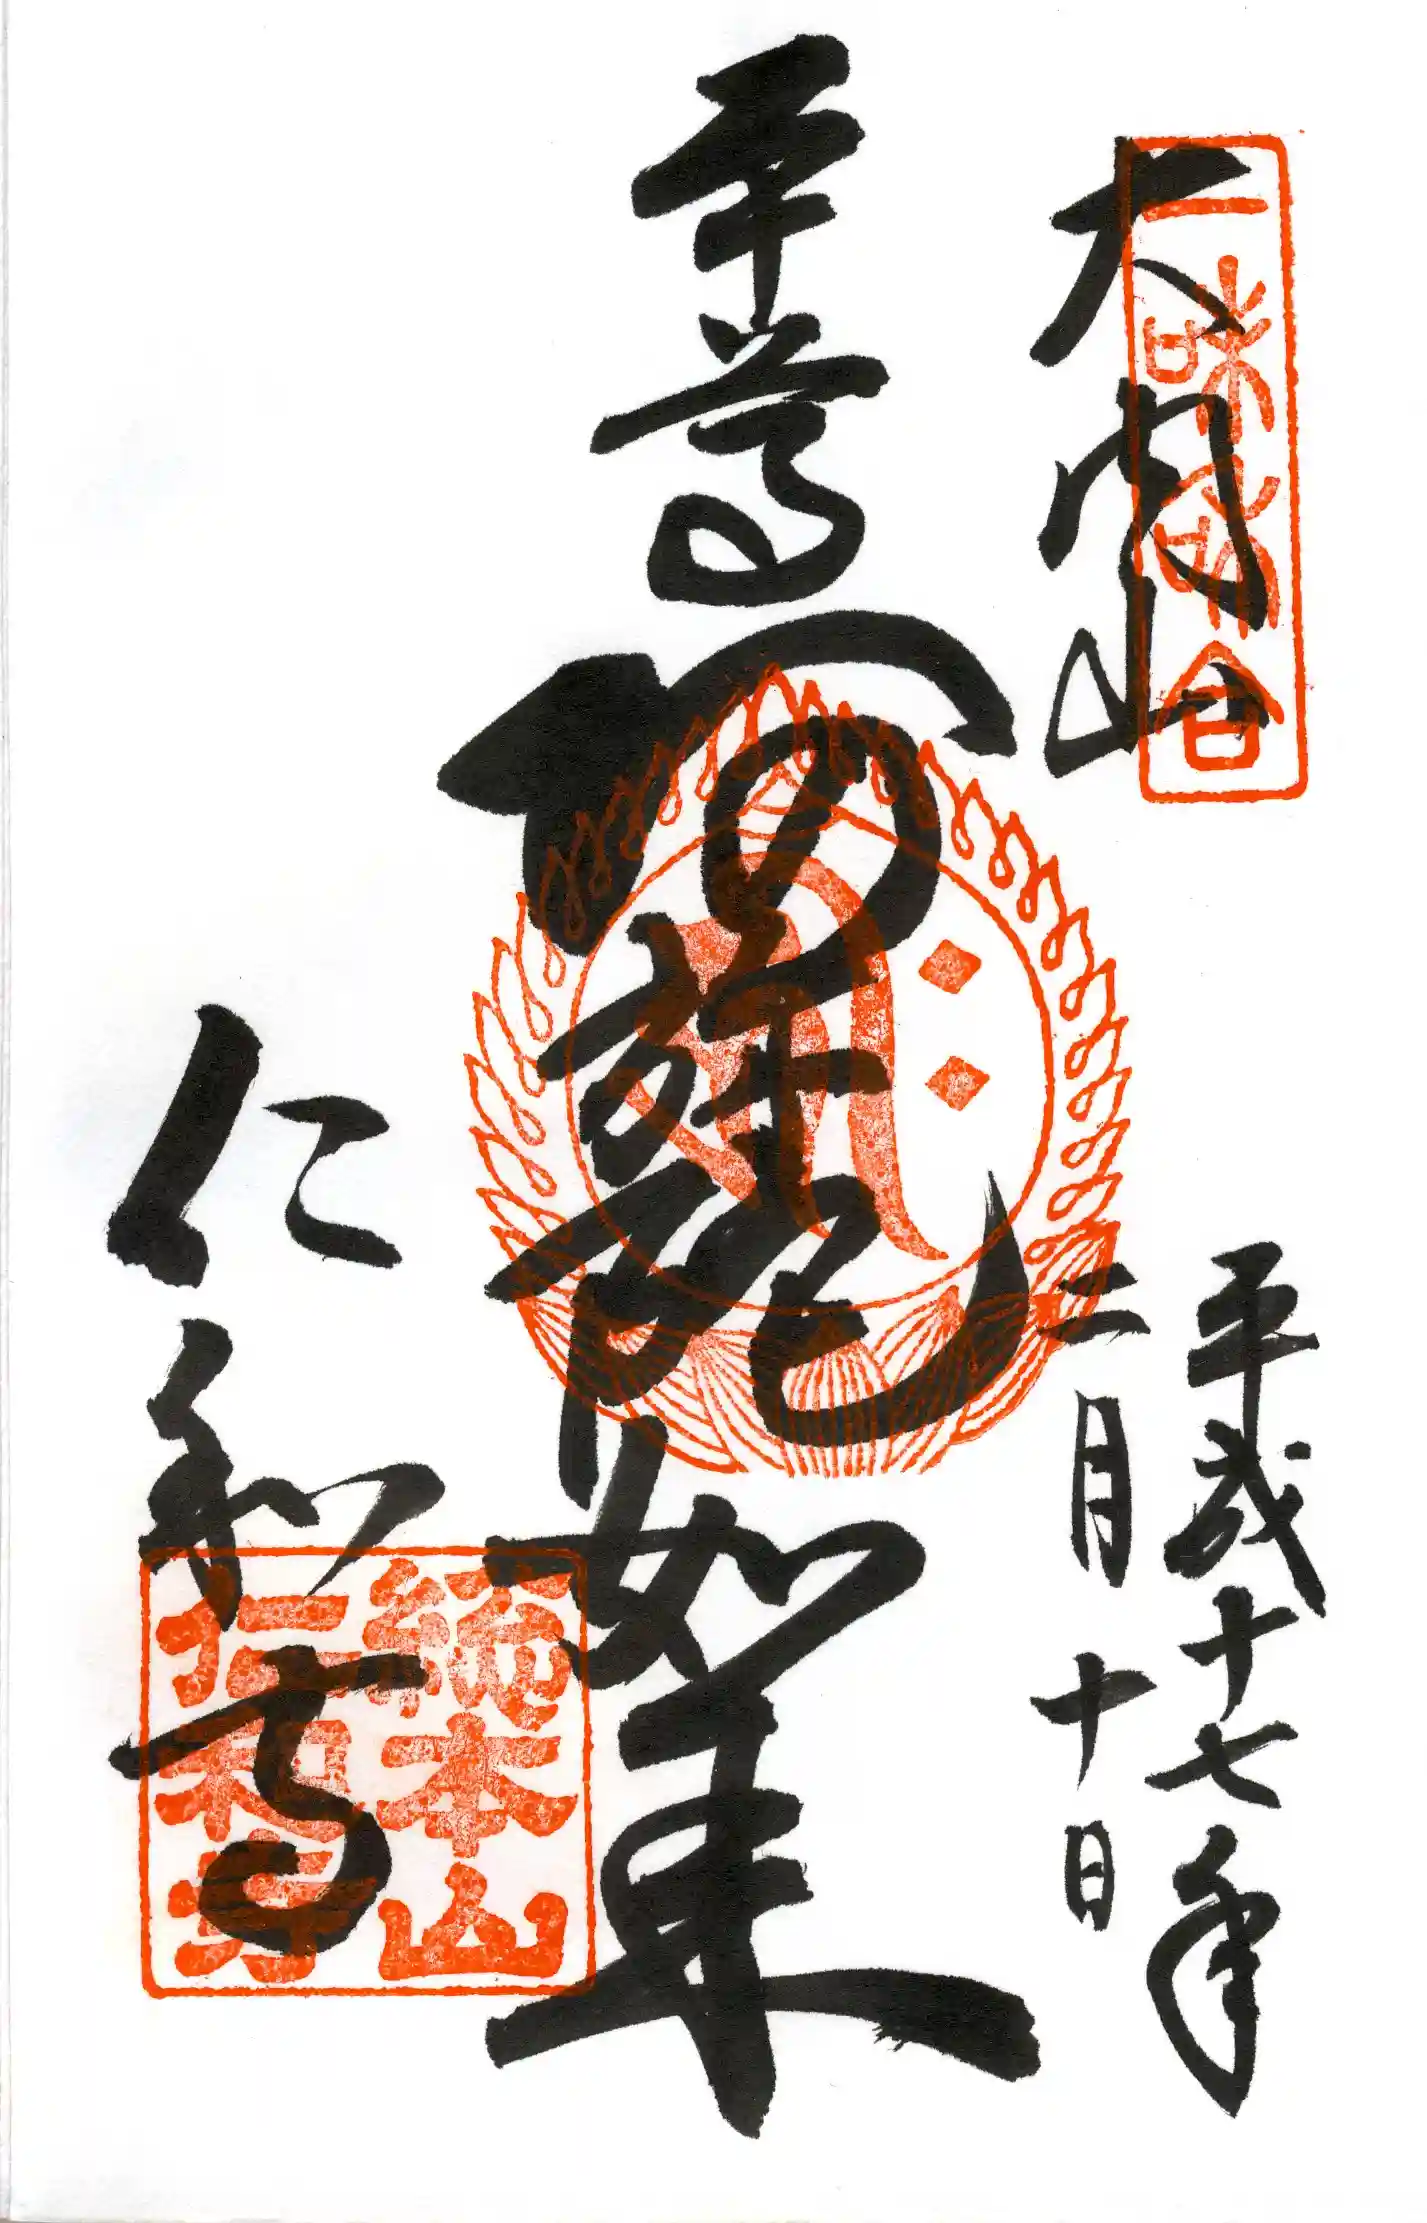 一味和合
大内山
平成十七年
二月十日
本尊
阿弥陀如来
仁和寺
総本山
仁和寺